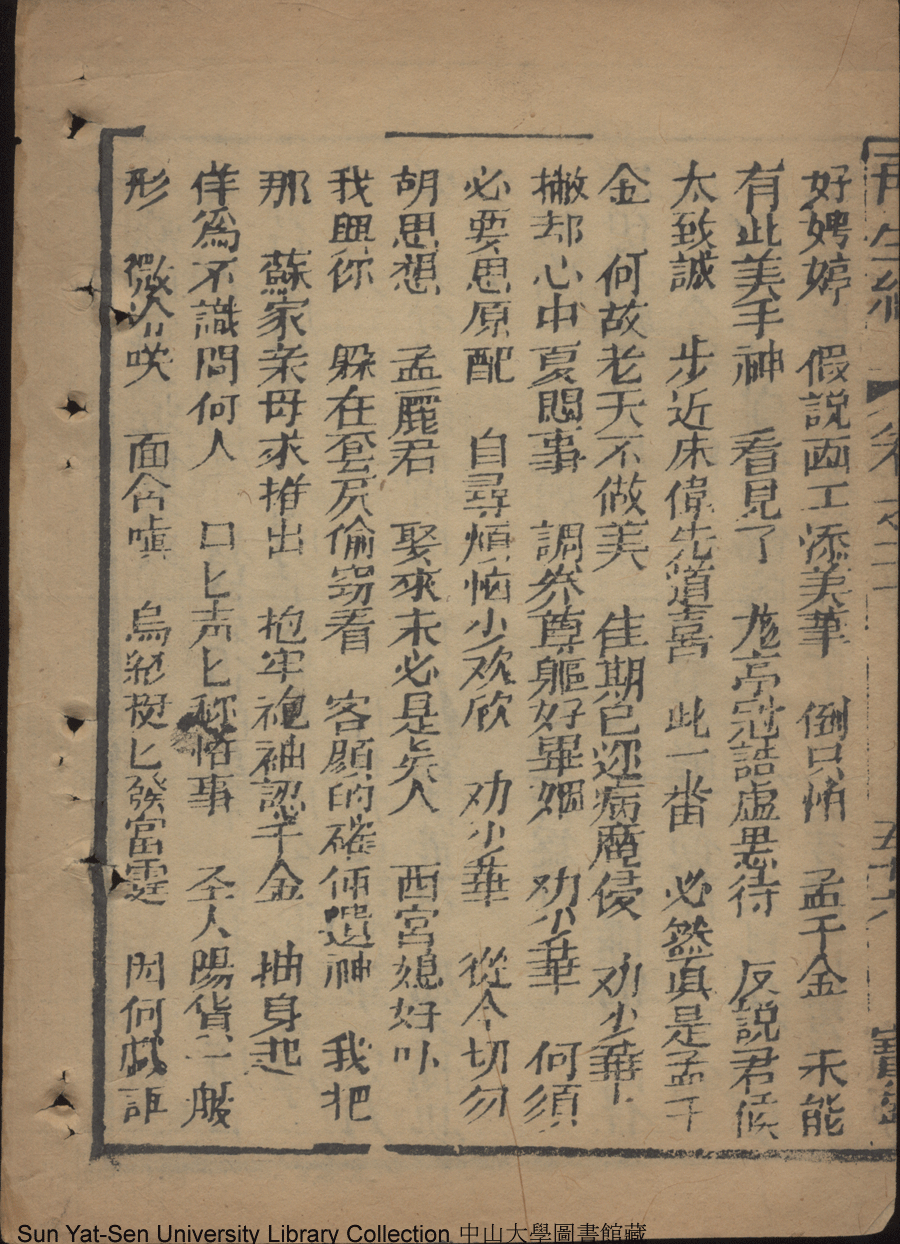 再生緣 卷之二 五十六
好娉婷 假説西工添美筆 倒只怕 孟千金 未能
有此美手神 看見了 龙亭冠誥虛思待 反説君候
太致誠 步近床偉先道喜 此一畨 必然眞是孟千
金 何故老天不做美 佳期已迩病魔侵 劝少華
撇却心中夏悶事 調养尊軀好畢姻 劝少華 何須
必要思原配 自尋煩恼少欢欣 劝少華 從今切勿
胡思想 孟麗君 娶來未必是矣人 西宫媳好
我與你 躱在套房偷窃看 客顔的確倆遺神 我把
那 蘇家亲母求推出 抱牢袍袖認千金 抽身起
佯為不識問何人 口匕声匕称怪事 圣人陽貨一般
形 微冷咲 面含嗔 烏紗挺匕發富霆 因何戯
Sun Yat-Sen University Library Collection 中山大學圖書館藏